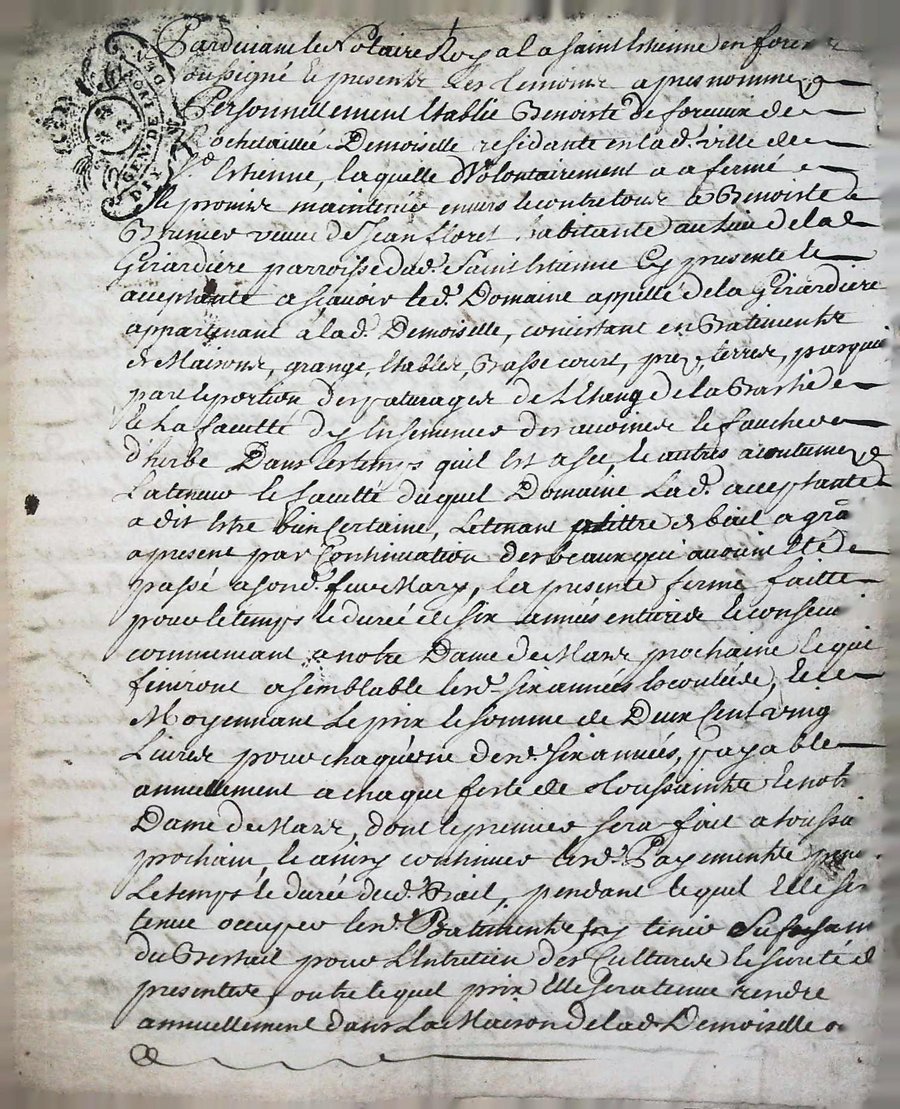 GEN. DE
DIX
Pardevant le Notaire Royal a Saint Etienne en forez
soussigné et presents les temoins apres nommez
Personnellement Establie Benoiste de foreux de
Rochetaillée Demoiselle residante en lad. ville de
St. Estienne, laquelle Volontairement a afermé
et promis maintenir envers et contre tous a Benoiste
Brunier veuve de Jean floret habitante au lieu de la
Girardiere parroisse dud. Saint Etienne Cy presente et
acceptante a scavoir led. Domaine appellé de la Girardiere
appartenant a lad. Demoiselle, concistant en Batiments
de Maisons, grange, Etables, Basse court, prez, terres, pasquie
part et portion des paturages de L'Etang de la Bastide
et La faculté d'y Ensemencer des avoines et faucher
d'herbe Dans les temps qu'il Est a sec, et autres acoutumez
La teneur et faculté duquel Domaine Lad. acceptante
a dit Estre bien Certaine, Le tenant a tittre de bail a
apresent par Continuation des beaux qui avoint Eté
passé a sond. feu Mary, la presente ferme faitte
pour le temps et durée de six années entieres et consecu
commencant a notre Dame de Mars prochaine et qui
finiront a semblable lesd. six années Ecoulées, et ce
Moyennant Le prix et somme de Deux Cent vingt
Livres pour chaqu'une desd. six années, payable
annuellement a chaque feste de Toussaints et notre
Dame de Mars, dont le premier sera fait a toussa
prochain et ainsy continuer lesd. Payements pend.
Le temps et durée dud. Bail, pendant lequel Elle ser
tenue occuper lesd. Batiments, y tenir Sufisam
du Bestail pour L'Entretien des Cultures et sureté des
presentes, outre lequel prix Elle sera tenue rendre
annuellement dans La Maison de lad. Demoiselle